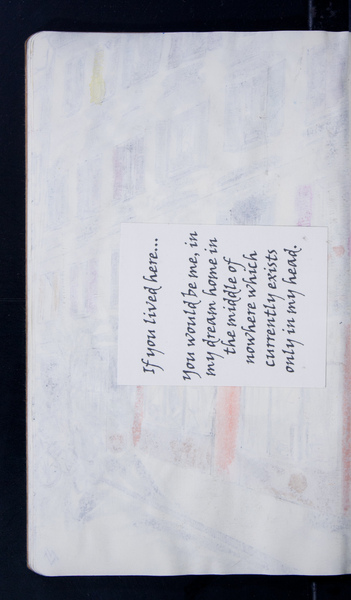 If you lived here...
You would be me, in
my dream home in
the middle of
nowhere which
currently exists
only in my head.